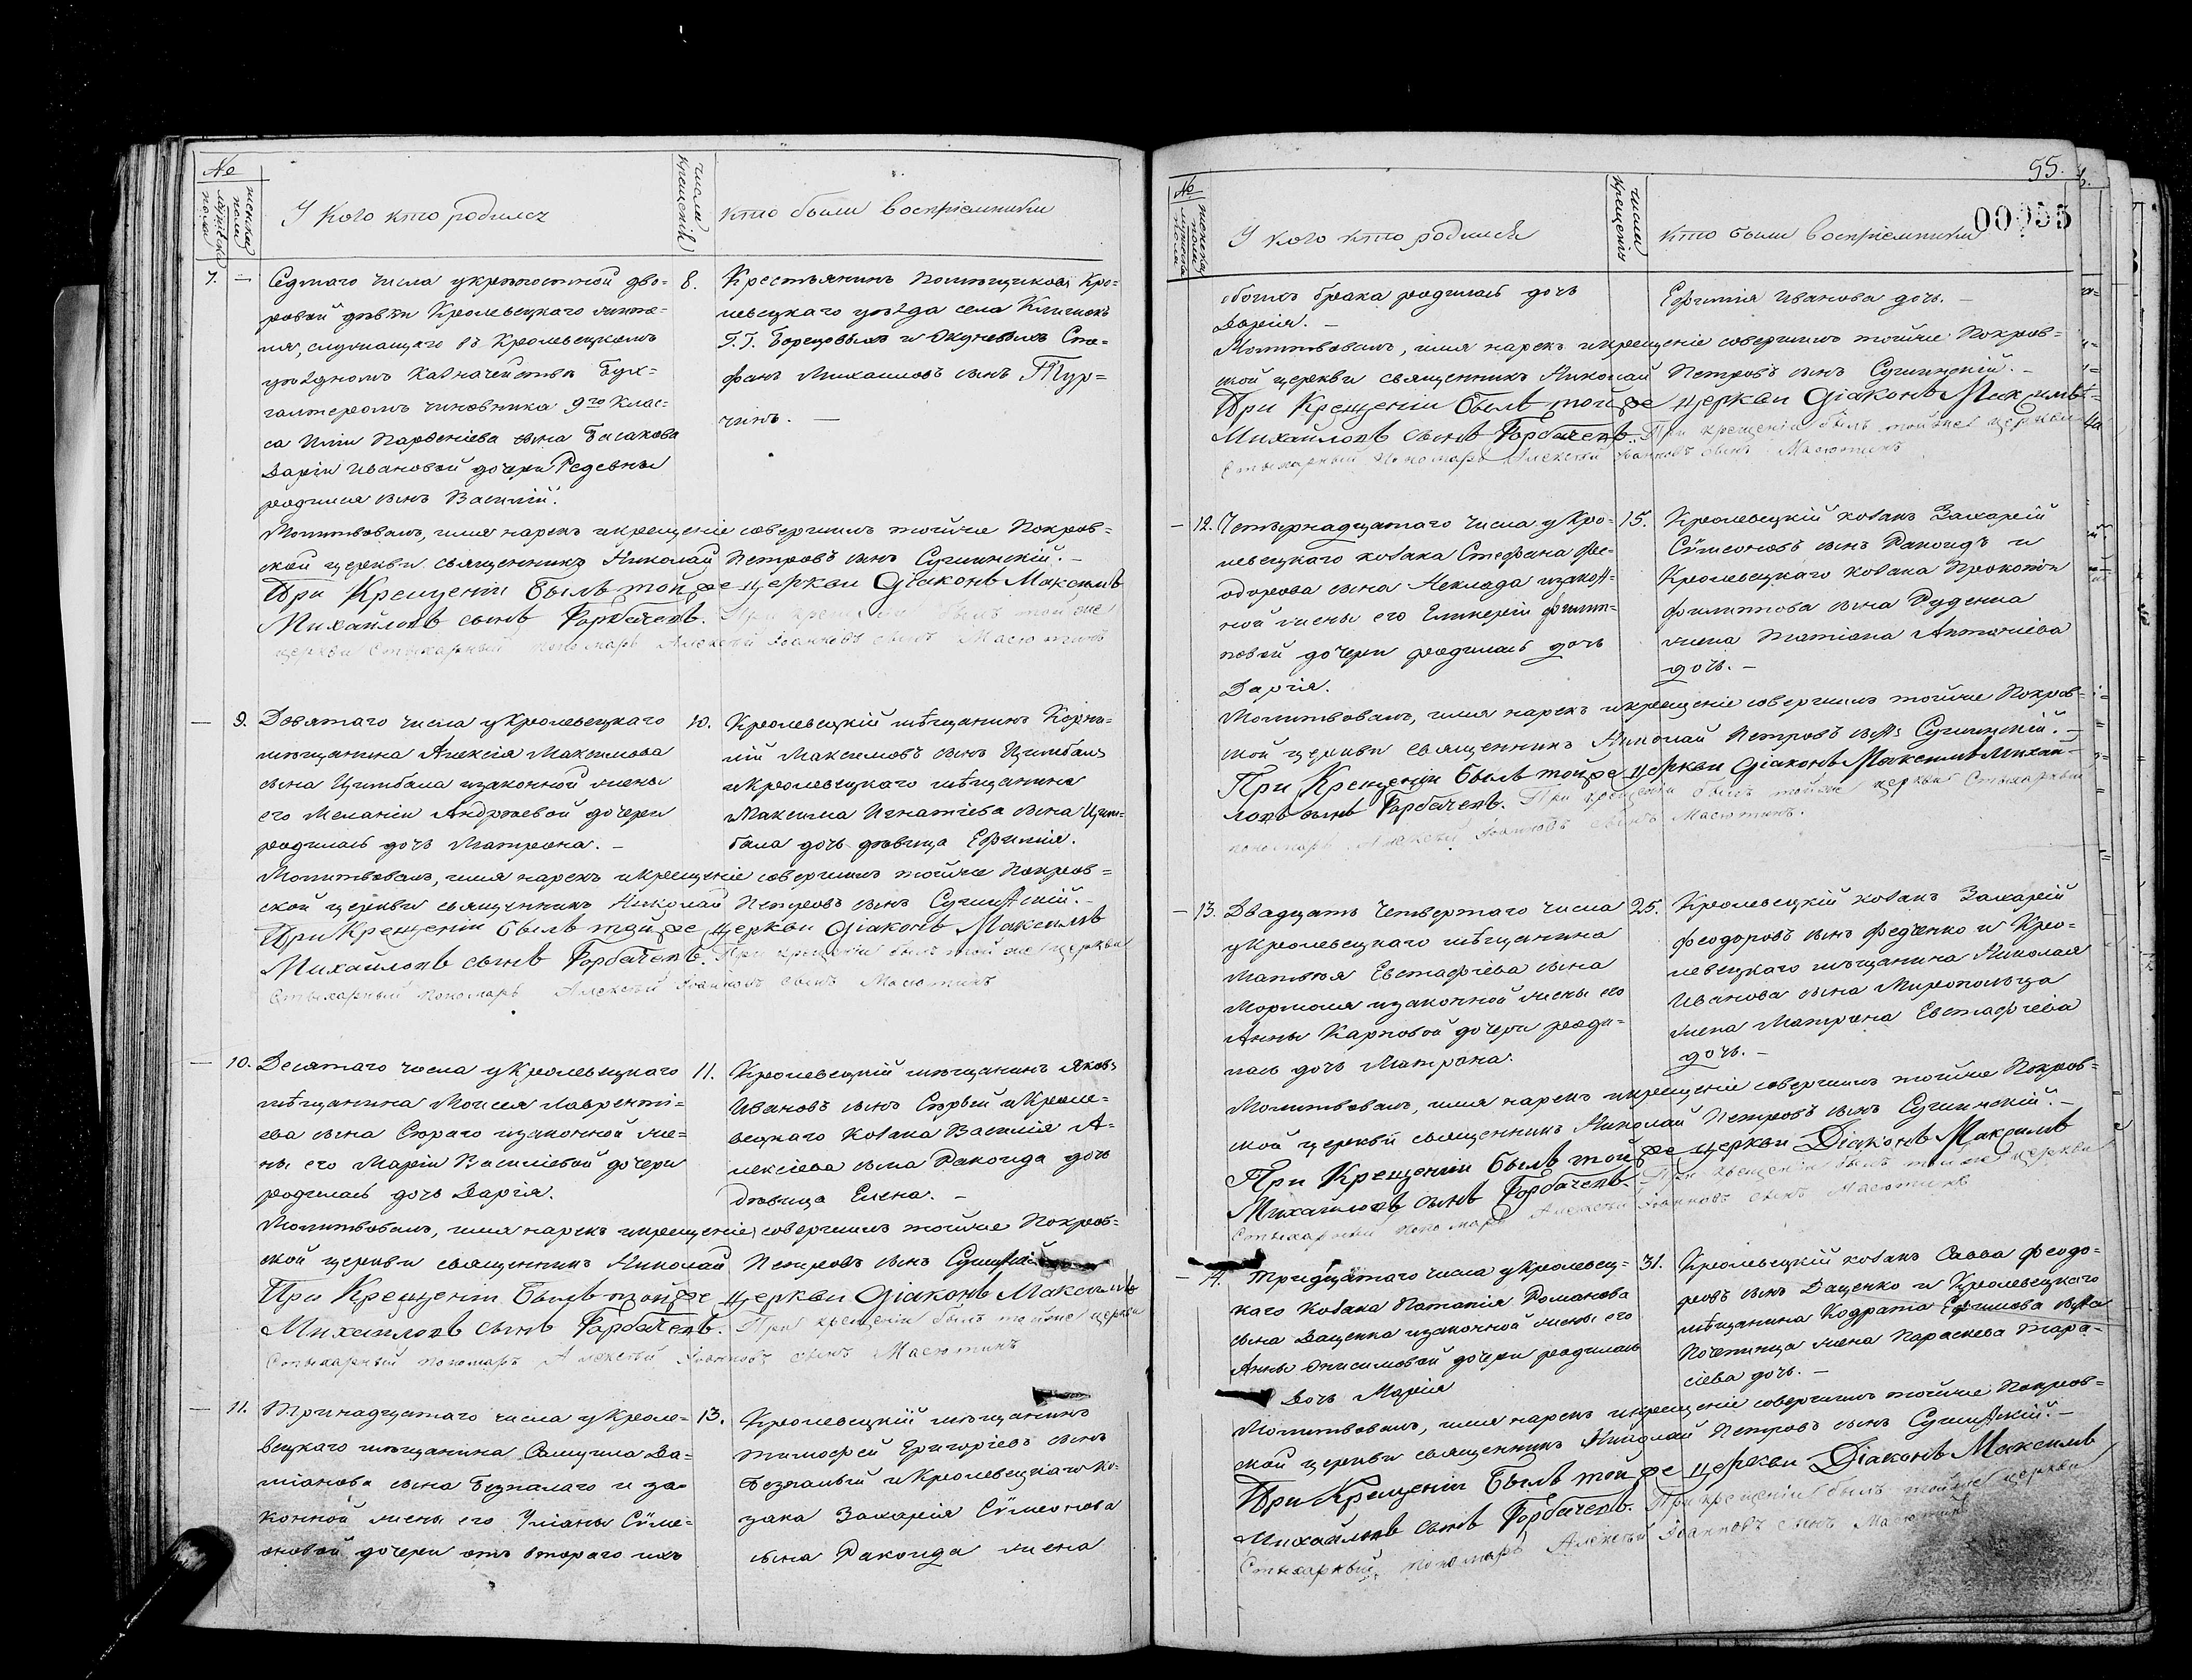 №
мужеска пола
женска пола
У кого кто родился
число крещенія
кто были воспріемники
7. —
Седмаго числа у крѣпостной дво-
ровой дѣвки Кролевецкаго жите-
ля, служащаго въ Кролевецкомъ
уѣздномъ Казначействѣ Бух-
галтеромъ чиновника 9го клас-
са Иліи Парѳеніева сына Басакова
Даріи Ивановой дочери Редевны
родился сынъ Василій.
8.
Крестьянинъ помѣщиковъ Кро-
левецкаго уѣзда села Клишокъ
Г.Г. Борецовыхъ и Окуневыхъ Сте-
фанъ Михаиловъ сынъ Тур-
чинъ. —
Молитвовалъ, имя нарекъ и крещеніе совершилъ тойже Покров-
ской церкви священникъ Николай Петровъ сынъ Сушинскій. —
При Крещеніи былъ той же церкви Діаконъ Максимъ
Михайловъ сынъ Горбачевъ. При крещеніи былъ той же
церкви Стыхарный пономарь Алексѣй Іоанновъ сынъ Масютинъ
— 9. Девятаго числа у Кролевецкаго
мѣщанина Алексія Максимова
сына Цимбала и законной жены
его Меланіи Андреевой дочери
родилась дочь Матрона. —
10.
Кролевецкій мѣщанинъ Корни-
лій Максимовъ сынъ Цимбалъ
и Кролевецкаго мѣщанина
Максима Игнатіева сына Цим-
бала дочь дѣвица Ефимія.
Молитвовалъ, имя нарекъ и крещеніе совершилъ тойже Покров-
ской церкви священникъ Николай Петровъ сынъ Сушинскій. —
При Крещеніи былъ той же церкви Діаконъ Максимъ
Михайловъ сынъ Горбачевъ. При крещеніи былъ той же церкви
Стыхарный пономарь Алексѣй Іоанновъ сынъ Масютинъ
— 10. Десятаго числа у Кролевецкаго
мѣщанина Моисея Лавренті-
ева сына Сѣраго и законной же-
ны его Маріи Василіевой дочери
родилась дочь Дарія.
11.
Кролевецкій мѣщанинъ Яковъ
Ивановъ сынъ Сѣрый и Кроле-
вецкаго Козака Василія А-
лексіева сына Ракоида дочь
дѣвица Елена. —
Молитвовалъ, имя нарекъ и крещеніе совершилъ тойже Покров-
ской церкви священникъ Николай Петровъ сынъ Сушинскій
При Крещеніи былъ той же церкви Діаконъ Максимъ
Михайловъ сынъ Горбачевъ. При крещеніи былъ тойже церкви
Стыхарный пономарь Алексѣй Іоанновъ сынъ Масютинъ
— 11. Тринадцатаго числа у Кроле-
вецкаго мѣщанина Самуила Да-
міанова сына Безпалаго и за-
конной жены его Уліаны Сѵме-
оновой дочери отъ втораго ихъ
13.
Кролевецкій мѣщанинъ
Тимоѳей Григоріевъ сынъ
Безпалый и Кролевецкаго Ко-
зака Захарія Сѵмеонова
сына Ракоида жена
55.
00055
№
мужеска пола
женска пола
У кого кто родился
число крещенія
кто были воспріемники
обоихъ брака родилась дочь
Дарія. —
Ефимія Иванова дочь. —
Молитвовалъ, имя нарекъ и крещеніе совершилъ тойже Покров-
ской церкви священникъ Николай Петровъ сынъ Сушинскій. —
При Крещеніи былъ той же церкви Діаконъ Максимъ
Михайловъ сынъ Горбачевъ. При крещеніи былъ тойже церкви
Стыхарный пономарь Алексѣй Іоанновъ сынъ Масютинъ
— 12. Четырнадцатаго числа у Кро-
левецкаго козака Стефана Фе-
одорова сына Неклада и закон-
ной жены его Гликеріи Филип-
повой дочери родилась дочь
Дарія.
15.
Кролевецкій козакъ Захарій
Сѵмеоновъ сынъ Ракоидъ и
Кролевецкаго козака Прокопія
Филиппова сына Руденка
жена Татіана Антоніева
дочь. —
Молитвовалъ, имя нарекъ и крещеніе совершилъ тойже Покров-
ской церкви священникъ Николай Петровъ сынъ Сушинскій. —
При Крещеніи былъ той же церкви Діаконъ Максимъ Михай-
ловъ сынъ Горбачевъ. При крещеніи былъ тойже церкви Стыхарный
пономарь Алексѣй Іоанновъ сынъ Масютинъ.
— 13. Двадцать четвертаго числа
у Кролевецкаго мѣщанина
Матвѣя Евстафіева сына
Мормоля и законной жены его
Анны Карповой дочери роди-
лась дочь Матрона.
25.
Кролевецкій козакъ Захарій
Феодоровъ сынъ Федченко и Кро-
левецкаго мѣщанина Николая
Иванова сына Миропольца
жена Матрона Евстафіева
дочь. —
Молитвовалъ, имя нарекъ и крещеніе совершилъ тойже Покров-
ской церкви священникъ Николай Петровъ сынъ Сушинскій. —
При Крещеніи былъ той же церкви Діаконъ Максимъ
Михайловъ сынъ Горбачевъ. При крещеніи былъ тойже церкви
Стыхарный пономарь Алексѣй Іоанновъ сынъ Масютинъ
— 14. Тридцатаго числа у Кролевец-
каго Козака Потапія Романова
сына Даценка и законной жены его
Анны Онисимовой дочери родилась
дочь Марія
31.
Кролевецкій козакъ Савва Феодо-
ровъ сынъ Даценко и Кролевецкаго
мѣщанина Кодрата Ефимова сына
Почепинца жена Параскева Тара-
сіева дочь. —
Молитвовалъ, имя нарекъ и крещеніе совершилъ тойже Покров-
ской церкви священникъ Николай Петровъ сынъ Сушинскій. —
При Крещеніи былъ той же церкви Діаконъ Максимъ
Михайловъ сынъ Горбачевъ. При крещеніи былъ тойже церкви
Стыхарный пономарь Алексѣй Іоанновъ сынъ Масютинъ